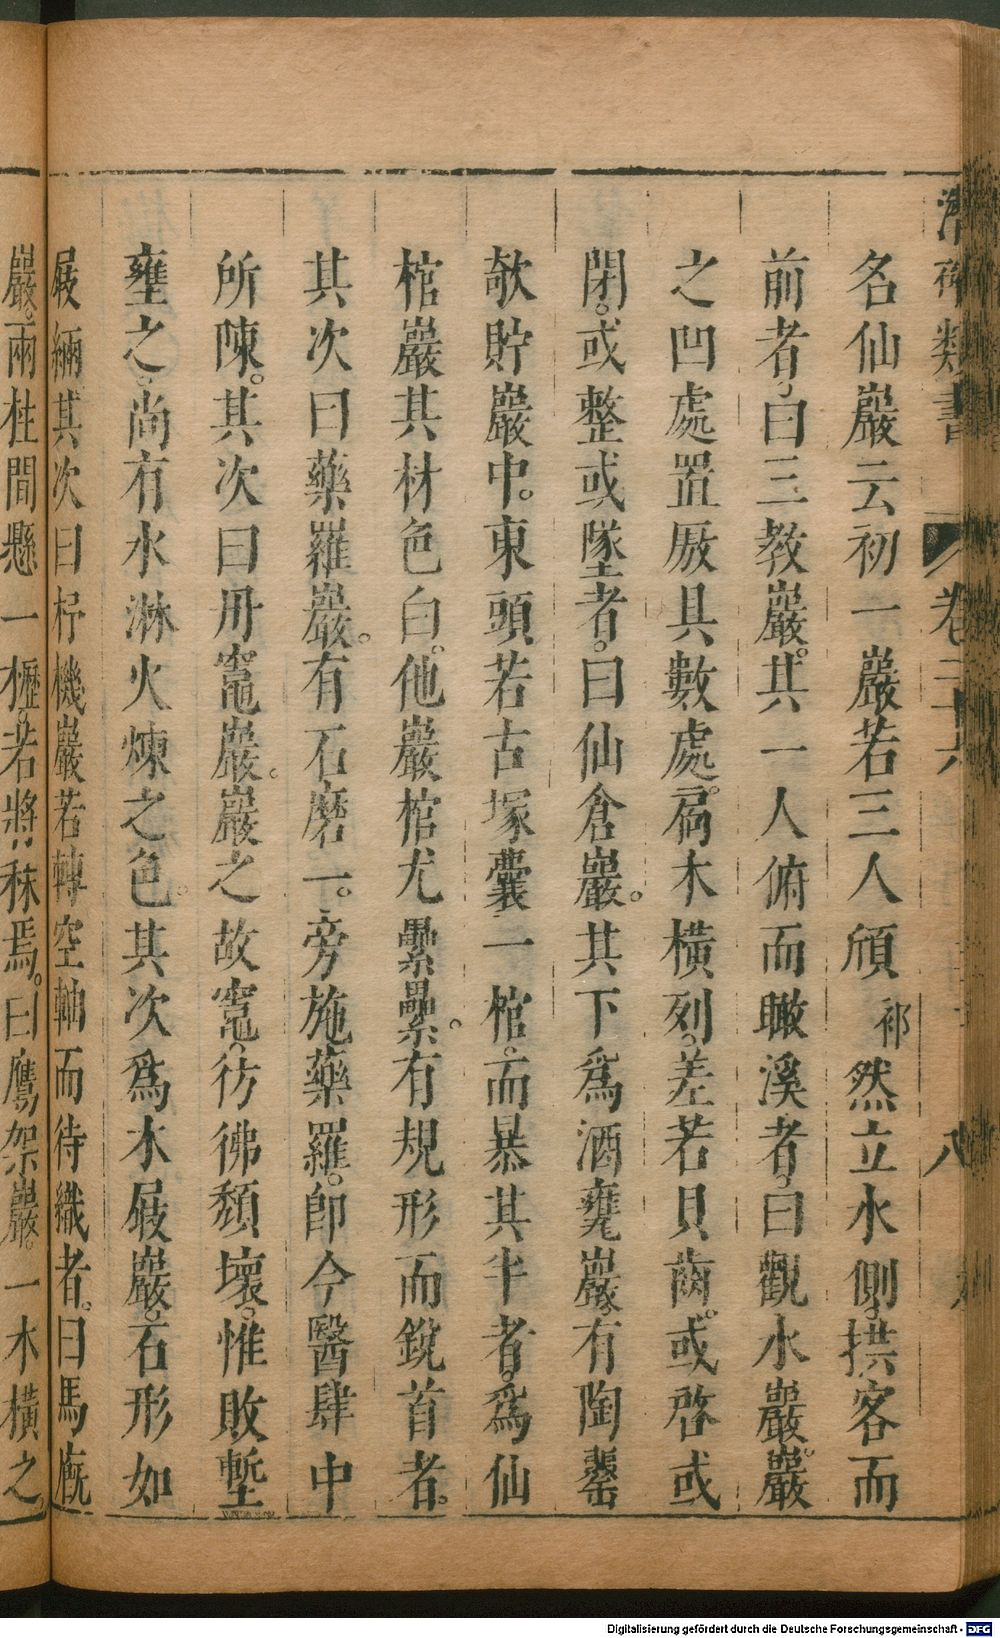 類書 卷二十六 八
名仙巖云初一巖若三人頎祁然立水側拱客而
前者曰三教巖其一人俯而瞰溪者曰觀水巖巖
之凹處置厫具數處扄木橫列差若貝齒或啓或
閉或整或墜者曰仙倉巖其下爲酒甕巖有陶罍
欹貯巖中東頭若古塚囊一棺而暴其半者爲仙
棺巖其材色白他巖棺尤纍纍有規形而銳首者
其次曰藥羅巖有石磨一旁施藥羅即今醫肆中
所陳其次曰丹竈巖巖之故竈彷彿頽壞惟敗塹
壅之尚有水淋火煉之色其次爲水屐巖石形如
屐緉其次曰杼機巖若轉空軸而待織者曰馬廐
巖兩柱間懸一櫪若將秣焉曰鷹架巖一木橫之
Digitalisierung gefördert durch die Deutsche Forschungsgemeinschaft - DFG